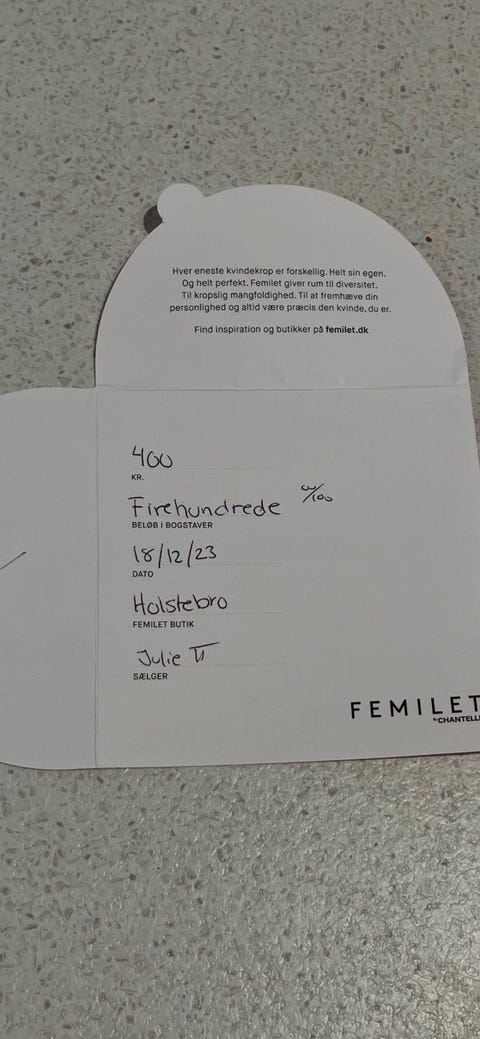 Hver eneste kvindekrop er forskellig. Helt sin egen.
Og helt perfekt. Femilet giver rum til diversitet.
Til kropslig mangfoldighed. Til at fremhæve din
personlighed og altid være præcis den kvinde, du er.
Find inspiration og butikker på femilet.dk
400
KR.
Firehundrede 00/100
BELØB I BOGSTAVER
18/12/23
DATO
Holstebro
FEMILET BUTIK
Julie
SÆLGER
FEMILET
By CHANTELL